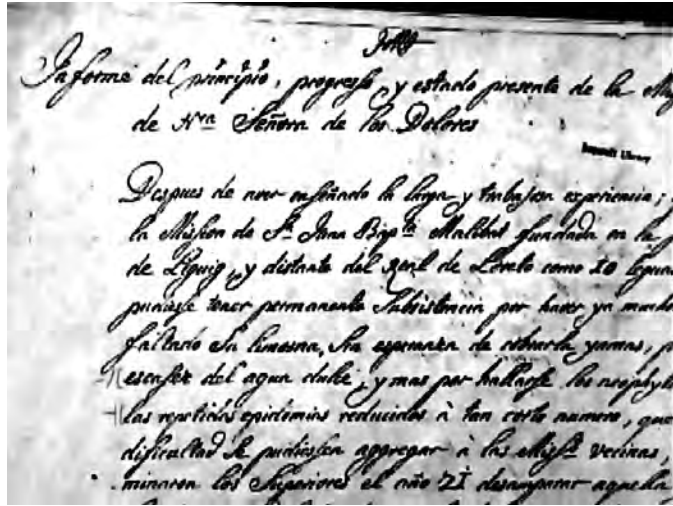 Informe del principio, progresso, y estado presente de la
de Nra Señora de los Dolores
Bancroft Library
Despues de aver enseñado la larga y trabajosa experiencia;
la Mission de Sn Juan Bapta Malibat fundada en la
de Liguig, y distante del Real de Loreto como 10 leguas
pudiesse tener permanente Subsistencia por haver ya mucho
faltado su limosna, sin esperanza de cobrarla yamas,
escasez del agua dulce, y mas por hallarse los neophytos
las repetidas epidemias reducidos à tan corto numero, que
dificultad se pudiessen aggregar à las Misss vecinas,
minaron los Superiores el año 21 desamparar aquella